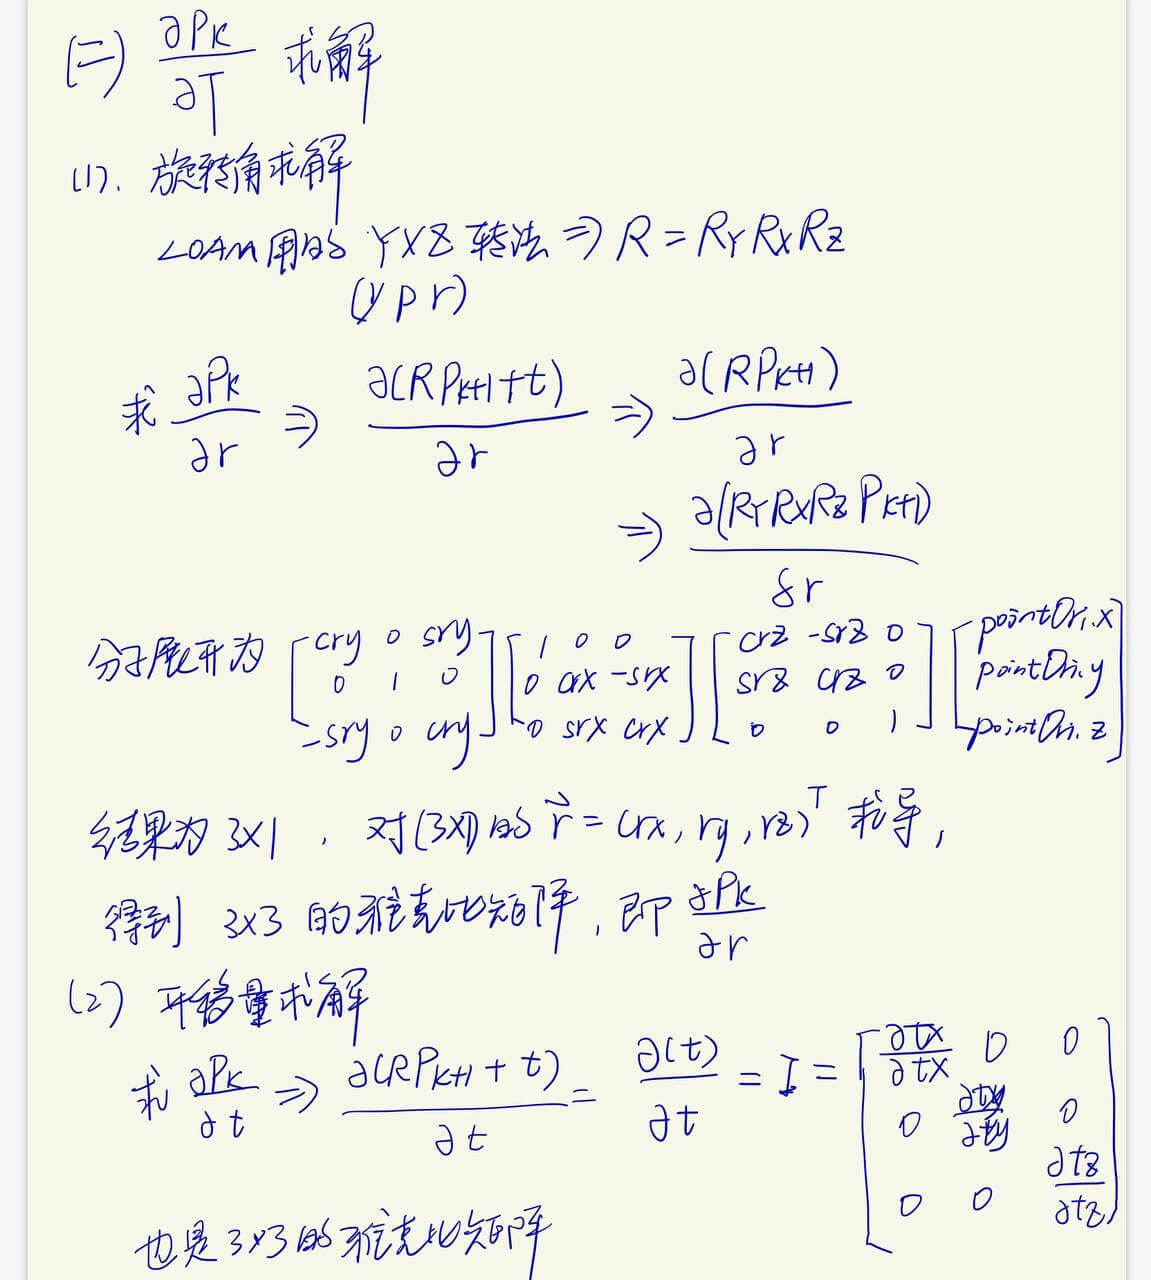 (二) ∂Pk/∂T 求解
(1). 旋转角求解
LOAM用的 YXZ 转法 ⇒ R = RY RX RZ
(y p r)
求 ∂Pk/∂r ⇒ ∂(RPk+1+t)/∂r ⇒ ∂(RPk+1)/∂r
⇒ ∂(RYRXRZPk+1)/δr
分子展开为 [cry 0 sry; 0 1 0; -sry 0 cry] [1 0 0; 0 crx -srx; 0 srx crx] [crz -srz 0; srz crz 0; 0 0 1] [pointOri.x; pointOri.y; pointOri.z]
结果为 3X1 , 对(3X1)的 r⃗ = (rx, ry, rz)^T 求导,
得到 3x3 的雅克比矩阵, 即 ∂Pk/∂r
(2) 平移量求解
求 ∂Pk/∂t ⇒ ∂(RPk+1 + t)/∂t = ∂(t)/∂t = I = [∂tx/∂tx 0 0; 0 ∂ty/∂ty 0; 0 0 ∂tz/∂tz]
也是 3x3 的雅克比矩阵